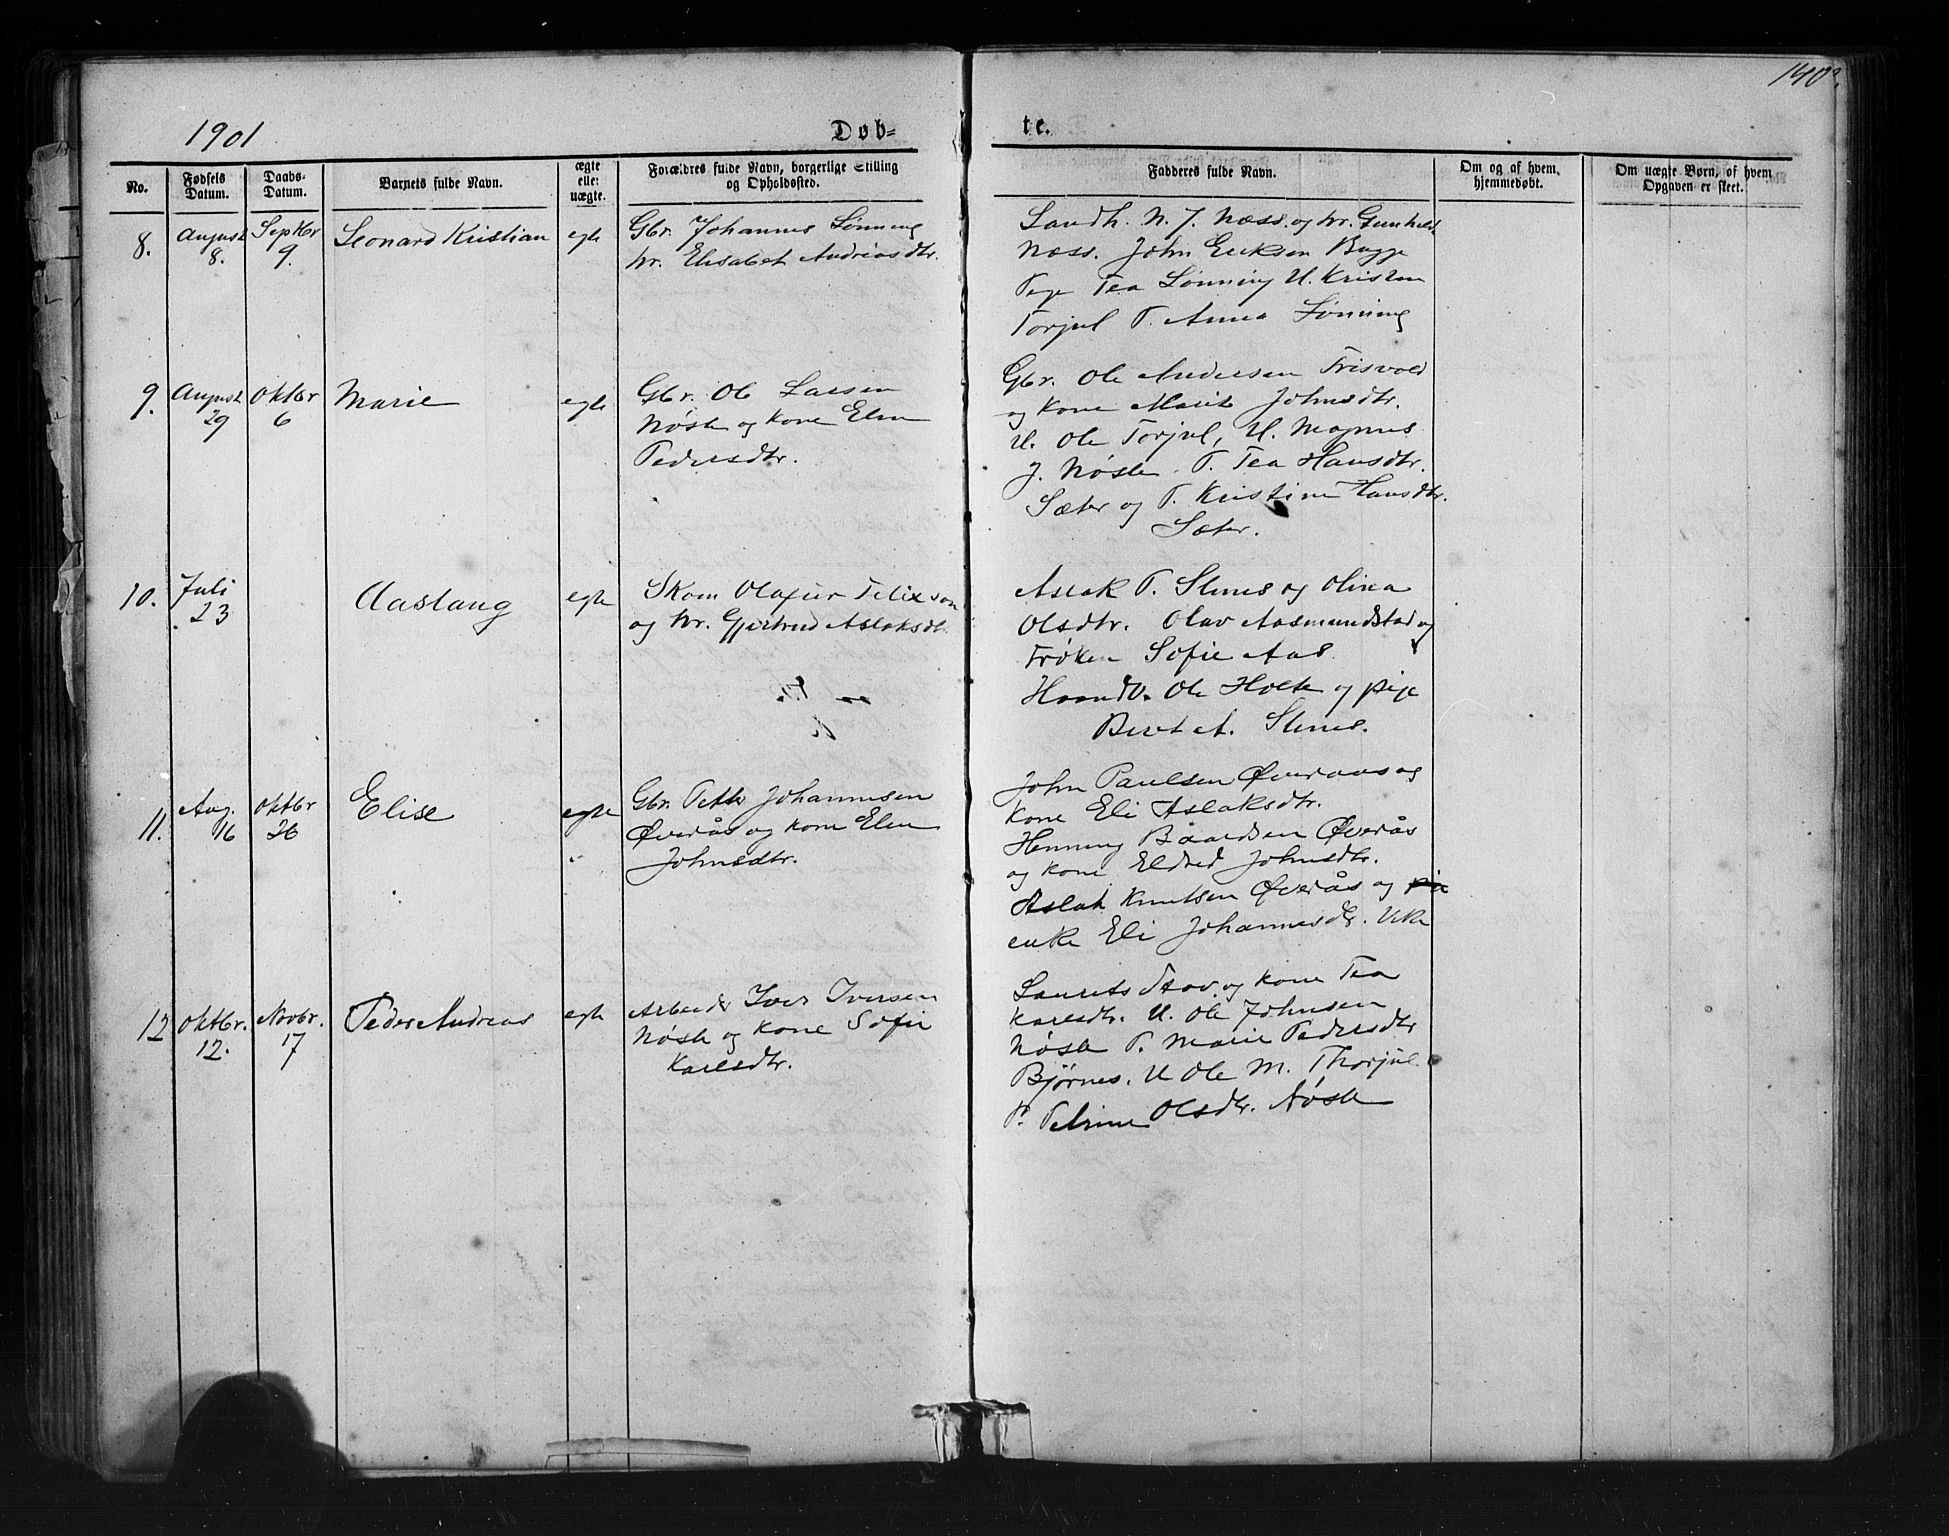 140
1901
Døb=
te.
No.
Fødsels Datum.
Daabs-Datum.
Barnets fulde Navn.
ægte eller uægte.
Forældres fulde Navn, borgerlige Stilling og Opholdssted.
Fadderes fulde Navn.
Om og af hvem hjemmedøbt.
Om uægte Børn, af hvem Opgaven er skeet.
8.
August 8.
Septbr 9.
Leonard Kristian
egte
Gbr. Johannes Lønning
hr. Elisabet Andreasdtr.
Landh. N. J. Næss. og hr. Gunhild
Næss. John Eriksen Bugge
Pige Tea Lønning U. Kristen
Torjul P. Anna Lønning
9.
August 29
Oktbr 6
Marie
egte
Gbr. Ole Larsen
Nøste og Kone Elen
Pedersdtr.
Gbr. Ole Andersen Frisvold
og Kone Marit Johnsdtr.
U. Ole Torjul, U. Magnus
J. Nøste. P. Tea Hansdtr.
Sæter og P. Kristine Hansdtr.
Sæter.
10.
Juli 23
Aaslaug
egte
Skom Olafur Felixson
og hr. Gjertrud Aslaksdtr.
Aslak T. Stenes og Olina
Olsdtr. Olav Aasmundstad og
Frøken Sofie Aas
Haandv. Ole Holte og pige
Berit A. Stenes.
11.
Aug. 16
Oktbr 26
Elise
egte
Gbr. Petter Johannesen
Øverås og Kone Elen
Johnsdtr.
John Paulsen Øveraas og
Kone Eli Aslaksdtr.
Henning Baardsen Øverås
og Kone Eldrid Johnsdtr.
Aslak Knutsen Øverås og
enke Eli Johannesdtr. Vike
12
Oktbr. 12.
Novbr. 17
Peder Andreas
egte
Arbeider Iver Iversen
Nøste og Kone Sofie
Karlsdtr.
Laurits Stov. og Kone Tea
Karlsdtr. U. Ole Johnsen
Nøste P. Marie Pedersdtr
Bjørnes. U Ole M. Thorjul
P. Petrine Olsdtr. Nøste